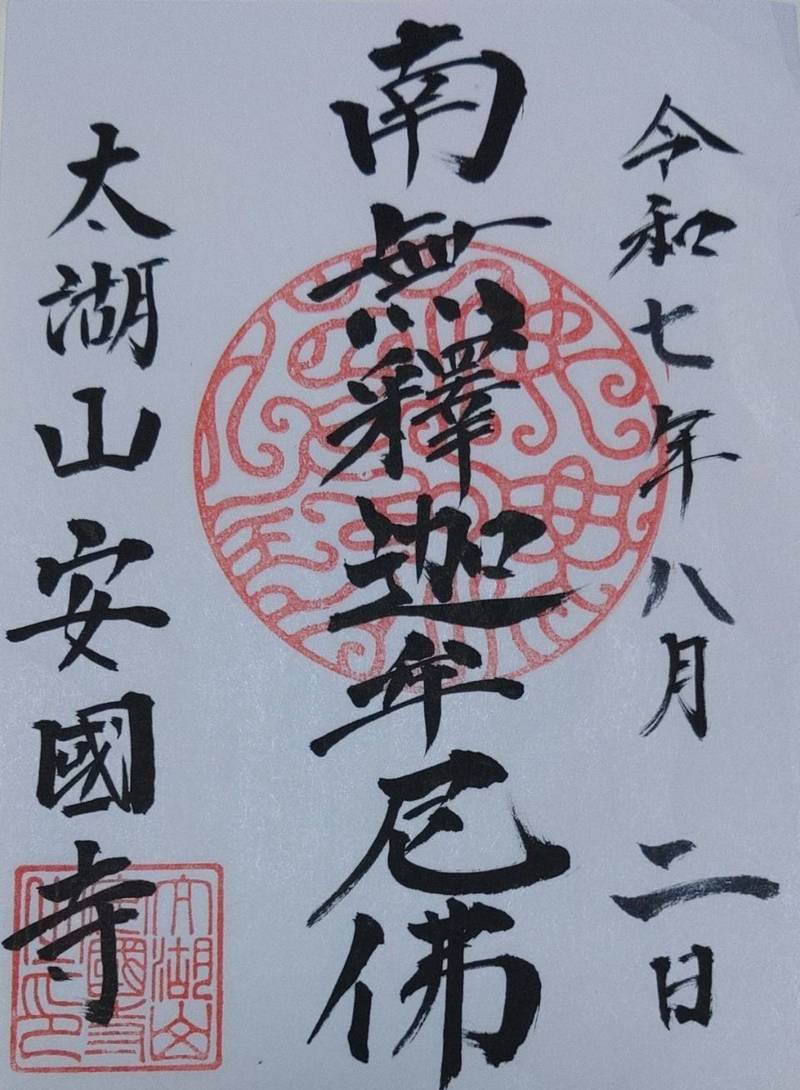 令和七年八月二日
南無釋迦牟尼佛
太湖山安國寺